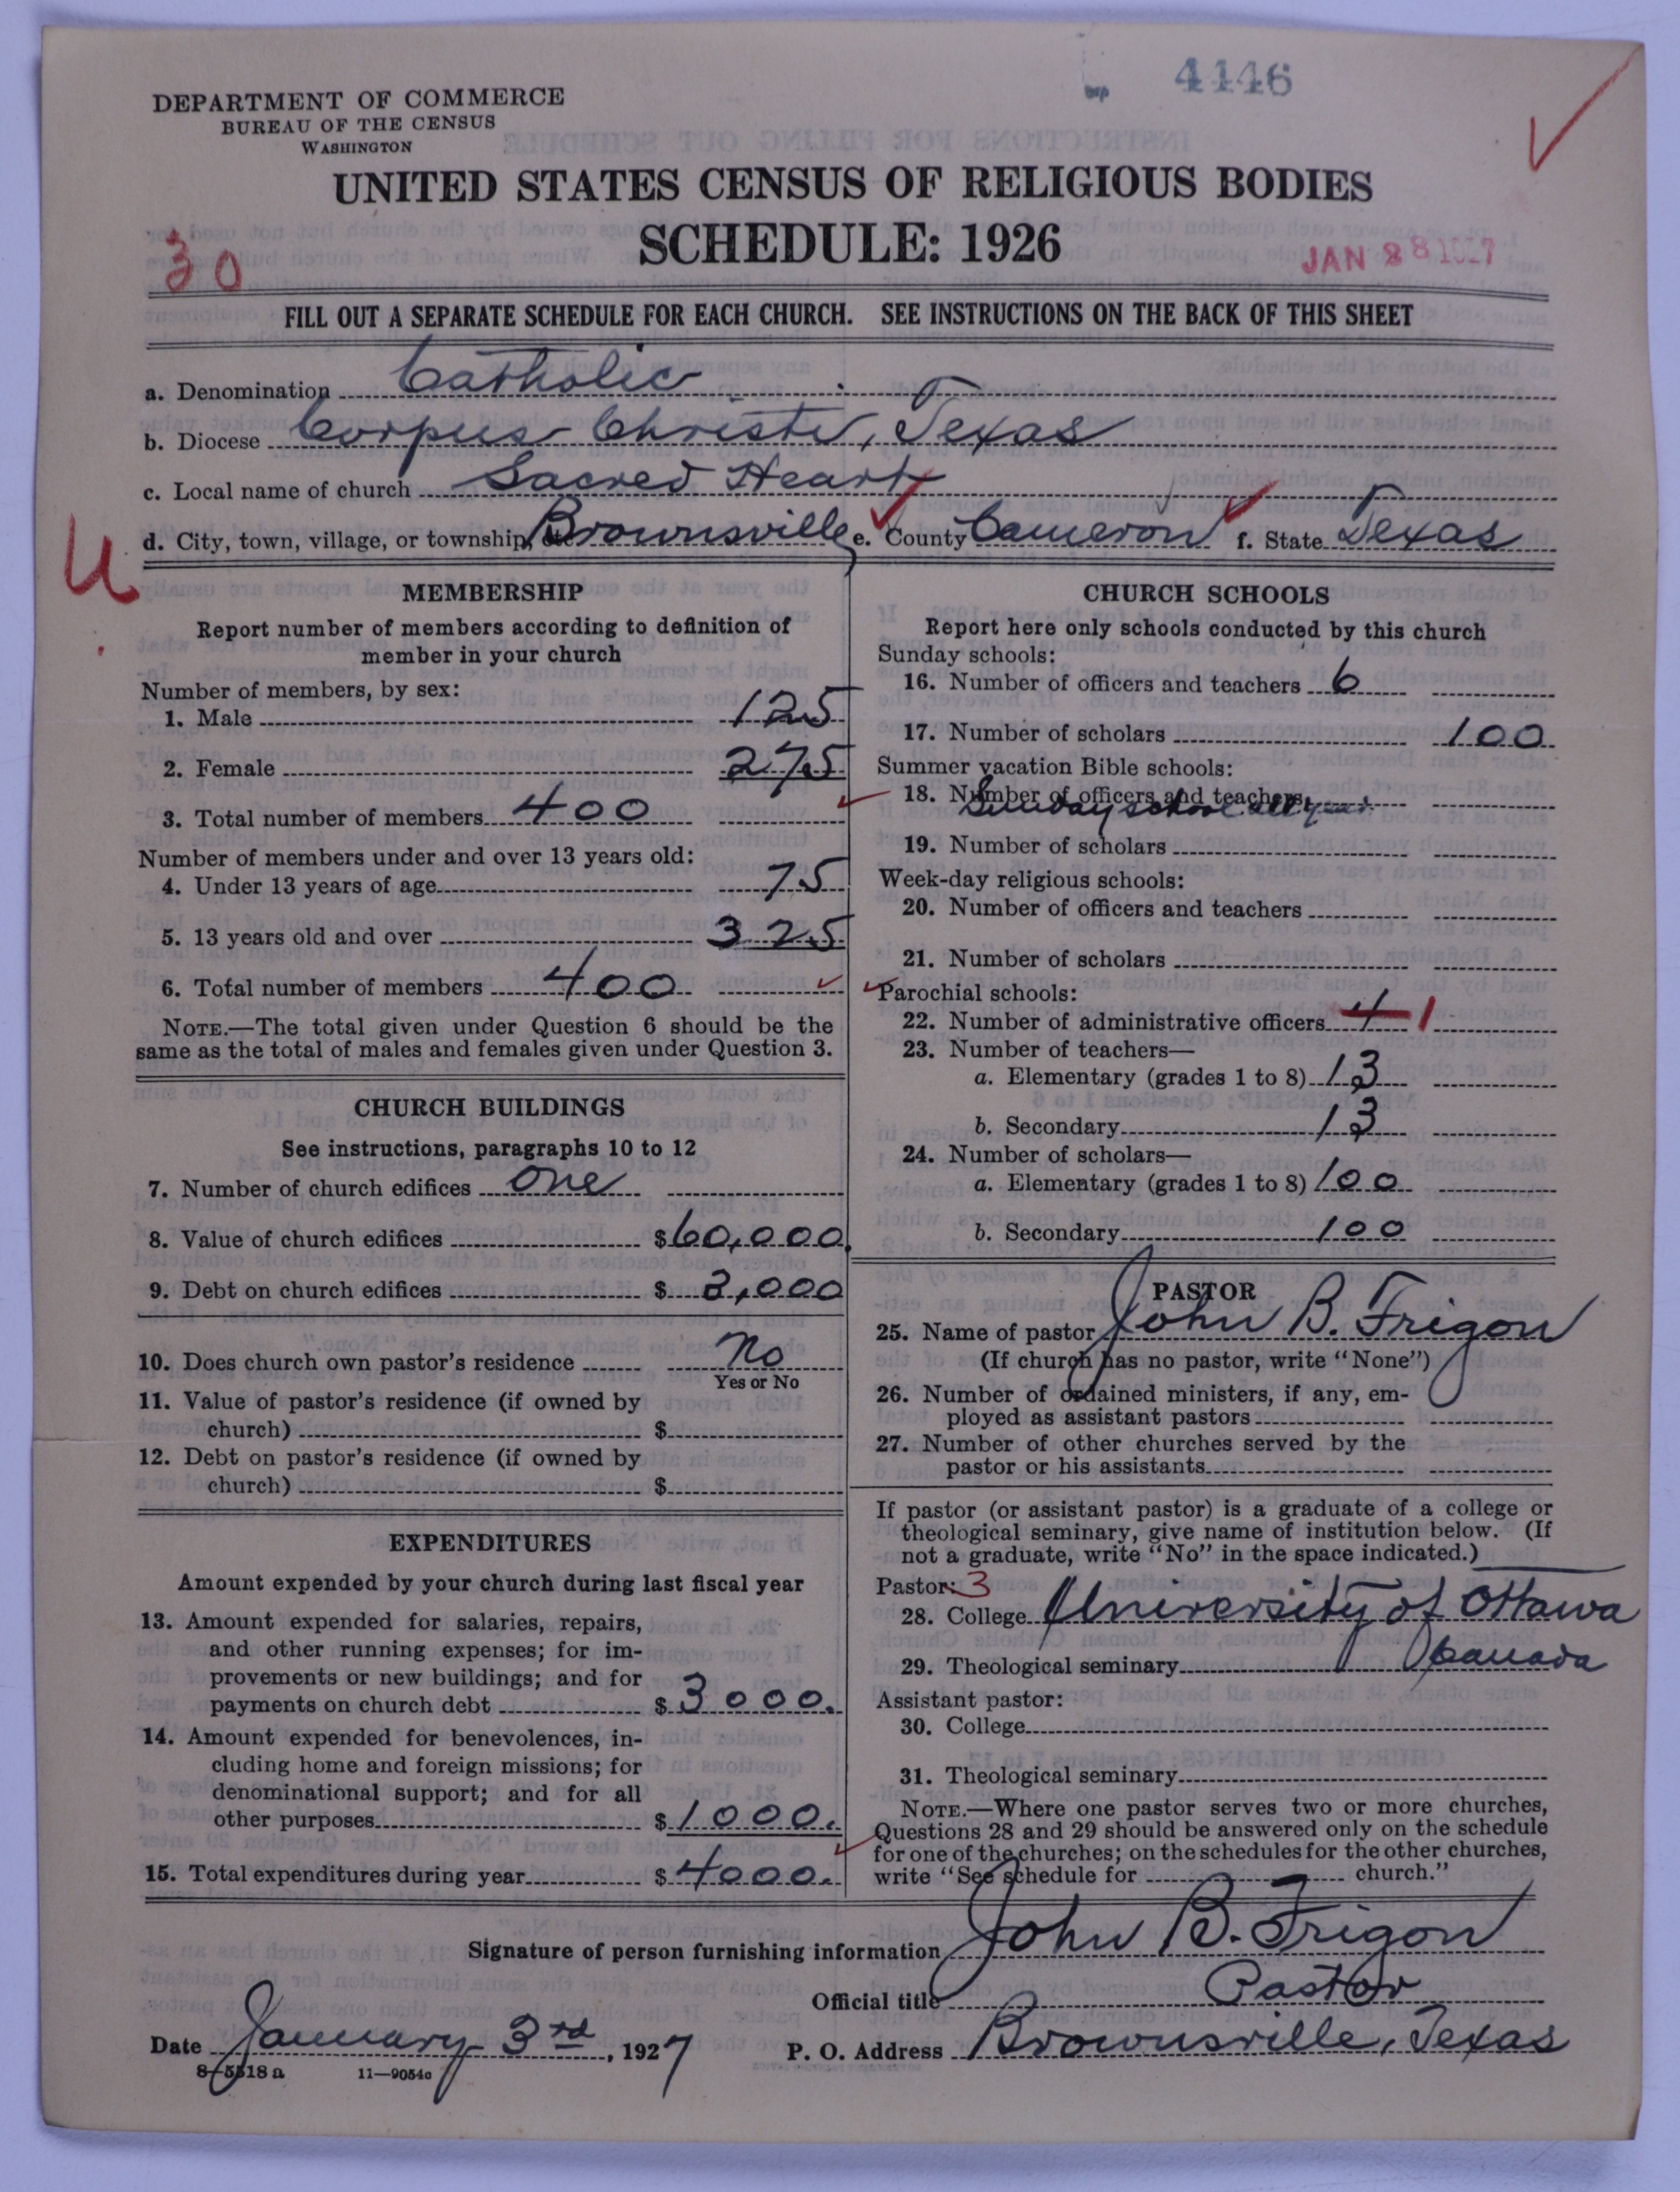 4146
DEPARTMENT OF COMMERCE
BUREAU OF THE CENSUS
WASHINGTON
UNITED STATES CENSUS OF RELIGIOUS BODIES
SCHEDULE: 1926
30
JAN 28 1927
FILL OUT A SEPARATE SCHEDULE FOR EACH CHURCH. SEE INSTRUCTIONS ON THE BACK OF THIS SHEET
a. Denomination Catholic
b. Diocese Corpus Christi, Texas
c. Local name of church Sacred Heart
d. City, town, village, or township, etc Brownsville e. County Cameron f. State Texas
U
MEMBERSHIP
Report number of members according to definition of
member in your church
Number of members, by sex:
1. Male 125
2. Female 275
3. Total number of members 400
Number of members under and over 13 years old:
4. Under 13 years of age 75
5. 13 years old and over 325
6. Total number of members 400
NOTE.—The total given under Question 6 should be the
same as the total of males and females given under Question 3.
CHURCH BUILDINGS
See instructions, paragraphs 10 to 12
7. Number of church edifices one
8. Value of church edifices $60,000
9. Debt on church edifices $ 2,000
10. Does church own pastor's residence No
Yes or No
11. Value of pastor's residence (if owned by
church) $
12. Debt on pastor's residence (if owned by
church) $
EXPENDITURES
Amount expended by your church during last fiscal year
13. Amount expended for salaries, repairs,
and other running expenses; for im-
provements or new buildings; and for
payments on church debt $ 3000.
14. Amount expended for benevolences, in-
cluding home and foreign missions; for
denominational support; and for all
other purposes $ 1000.
15. Total expenditures during year $ 4000.
CHURCH SCHOOLS
Report here only schools conducted by this church
Sunday schools:
16. Number of officers and teachers 6
17. Number of scholars 100
Summer vacation Bible schools:
18. Number of officers and teachers
Sunday school all year
19. Number of scholars
Week-day religious schools:
20. Number of officers and teachers
21. Number of scholars
Parochial schools:
22. Number of administrative officers 4 1
23. Number of teachers—
a. Elementary (grades 1 to 8) 13
b. Secondary 13
24. Number of scholars—
a. Elementary (grades 1 to 8) 100
b. Secondary 100
PASTOR
25. Name of pastor John B. Frigon
(If church has no pastor, write "None")
26. Number of ordained ministers, if any, em-
ployed as assistant pastors
27. Number of other churches served by the
pastor or his assistants
If pastor (or assistant pastor) is a graduate of a college or
theological seminary, give name of institution below. (If
not a graduate, write "No" in the space indicated.)
Pastor: 3
28. College University of Ottawa
29. Theological seminary Canada
Assistant pastor:
30. College
31. Theological seminary
NOTE.—Where one pastor serves two or more churches,
Questions 28 and 29 should be answered only on the schedule
for one of the churches; on the schedules for the other churches,
write "See schedule for church."
Signature of person furnishing information John B. Frigon
Official title Pastor
Date January 3rd, 1927 P. O. Address Brownsville, Texas
8-5518 a 11—9054c